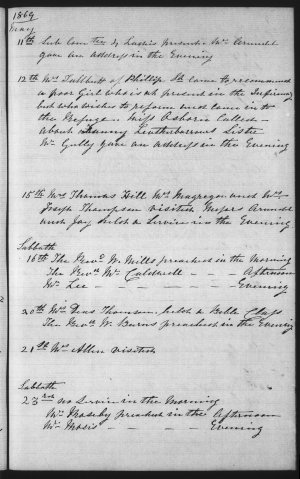 1869
May
11th Sub Com tee of Ladies present. Mr. Arundel
gave an address in the Evening
12th Mrs Tallbutt of Phillip St came to recommend
a poor Girl who is at present in the Infirmary
but who wishes to reform and come in to
the Refuge. Miss Osborne Called
about Fanny Leatherbarrows Sister
Mr. Gully gave an address in the Evening
15th Mrs Thomas Hill Mrs Macgregor and Mrs
Joseph Thompson visited. Messrs Arundel
and Jay held a Service in the Evening.
Sabbath
16th The Revd W. Mills preached in the Morning
The Revd Mr Caldwell - - - Afternoon
Mr. Lee - - - - Evening
20th Mrs Deas Thomson held a Bible Class
The Revd W. Burns preached in the Evening
21st Mrs Allen visited
Sabbath
23rd no Service in the Morning
Mr. Moseby preached in the Afternoon
Mr. - - - Evening